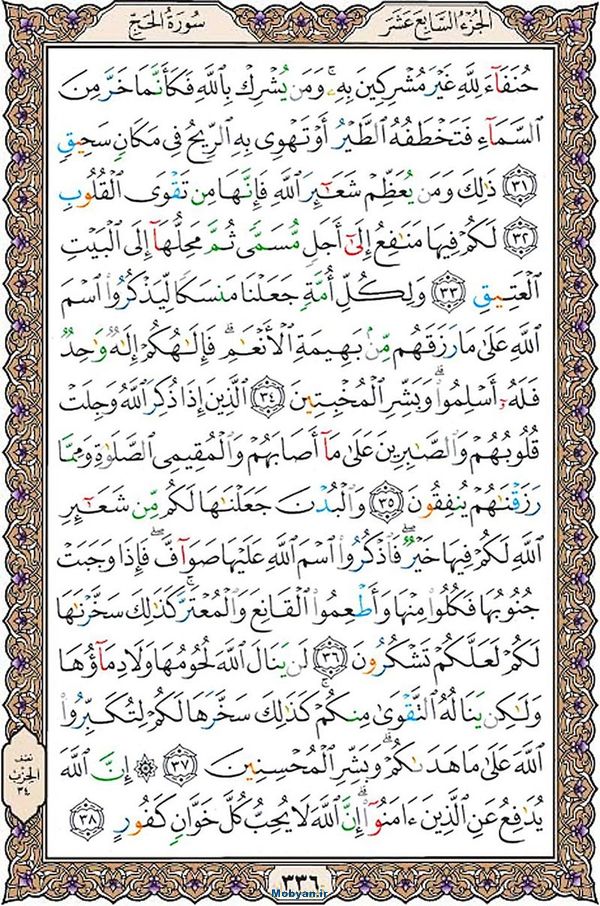 الجزء السابع عشر
سورة الحج
حُنَفَآءَ لِلَّهِ غَيْرَ مُشْرِكِينَ بِهِۦ ۚ وَمَن يُشْرِكْ بِٱللَّهِ فَكَأَنَّمَا خَرَّ مِنَ
ٱلسَّمَآءِ فَتَخْطَفُهُ ٱلطَّيْرُ أَوْ تَهْوِى بِهِ ٱلرِّيحُ فِى مَكَانٍ سَحِيقٍ
﴿٣١﴾ ذَٰلِكَ وَمَن يُعَظِّمْ شَعَٰٓئِرَ ٱللَّهِ فَإِنَّهَا مِن تَقْوَى ٱلْقُلُوبِ
﴿٣٢﴾ لَكُمْ فِيهَا مَنَٰفِعُ إِلَىٰٓ أَجَلٍ مُّسَمًّى ثُمَّ مَحِلُّهَآ إِلَى ٱلْبَيْتِ
ٱلْعَتِيقِ ﴿٣٣﴾ وَلِكُلِّ أُمَّةٍ جَعَلْنَا مَنسَكًا لِّيَذْكُرُوا۟ ٱسْمَ
ٱللَّهِ عَلَىٰ مَا رَزَقَهُم مِّنۢ بَهِيمَةِ ٱلْأَنْعَٰمِ ۗ فَإِلَٰهُكُمْ إِلَٰهٌ وَٰحِدٌ
فَلَهُۥٓ أَسْلِمُوا۟ ۗ وَبَشِّرِ ٱلْمُخْبِتِينَ ﴿٣٤﴾ ٱلَّذِينَ إِذَا ذُكِرَ ٱللَّهُ وَجِلَتْ
قُلُوبُهُمْ وَٱلصَّٰبِرِينَ عَلَىٰ مَآ أَصَابَهُمْ وَٱلْمُقِيمِى ٱلصَّلَوٰةِ وَمِمَّا
رَزَقْنَٰهُمْ يُنفِقُونَ ﴿٣٥﴾ وَٱلْبُدْنَ جَعَلْنَٰهَا لَكُم مِّن شَعَٰٓئِرِ
ٱللَّهِ لَكُمْ فِيهَا خَيْرٌ ۖ فَٱذْكُرُوا۟ ٱسْمَ ٱللَّهِ عَلَيْهَا صَوَآفَّ ۖ فَإِذَا وَجَبَتْ
جُنُوبُهَا فَكُلُوا۟ مِنْهَا وَأَطْعِمُوا۟ ٱلْقَانِعَ وَٱلْمُعْتَرَّ ۚ كَذَٰلِكَ سَخَّرْنَٰهَا
لَكُمْ لَعَلَّكُمْ تَشْكُرُونَ ﴿٣٦﴾ لَن يَنَالَ ٱللَّهَ لُحُومُهَا وَلَا دِمَآؤُهَا
وَلَٰكِن يَنَالُهُ ٱلتَّقْوَىٰ مِنكُمْ ۚ كَذَٰلِكَ سَخَّرَهَا لَكُمْ لِتُكَبِّرُوا۟
ٱللَّهَ عَلَىٰ مَا هَدَىٰكُمْ ۗ وَبَشِّرِ ٱلْمُحْسِنِينَ ﴿٣٧﴾ ۞ إِنَّ ٱللَّهَ
يُدَٰفِعُ عَنِ ٱلَّذِينَ ءَامَنُوٓا۟ ۗ إِنَّ ٱللَّهَ لَا يُحِبُّ كُلَّ خَوَّانٍ كَفُورٍ ﴿٣٨﴾
نصف
الحزب
٣٤
٣٣٦
Mobyan.ir